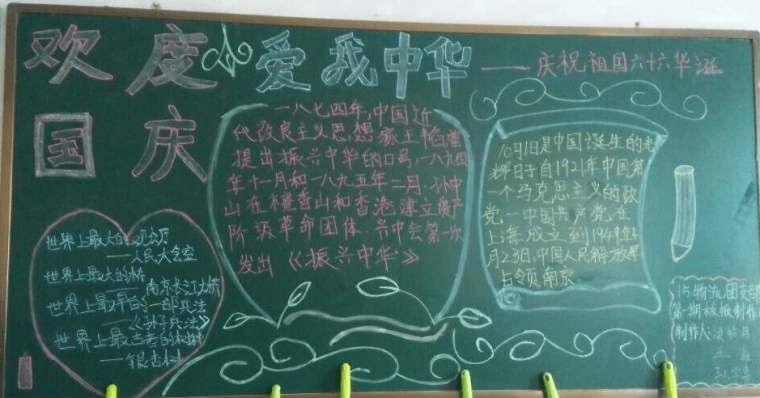 欢度
国庆
爱我中华
——庆祝祖国六十六华诞
一八七四年,中国近
代改良主义思想家王韬曾
提出振兴中华的口号,一八九四
年十一月和一八九五年二月,孙中
山在檀香山和香港建立资产
阶级革命团体,兴中会第一次
发出《振兴中华》
10月1日是中国诞生的光
辉日子自1921年中国第
一个马克思主义的政
党,一中国共产党,在
上海,成立到1949年4
月23日,中国人民解放军
占领南京.
世界上最大的
——人民大会堂
世界上最大的桥
南京长江大桥
世界上最早的一部兵法
——《孙子兵法》
世界上最古老的树种
——银杏树
15物流团支部
第一期板报制作
制作人